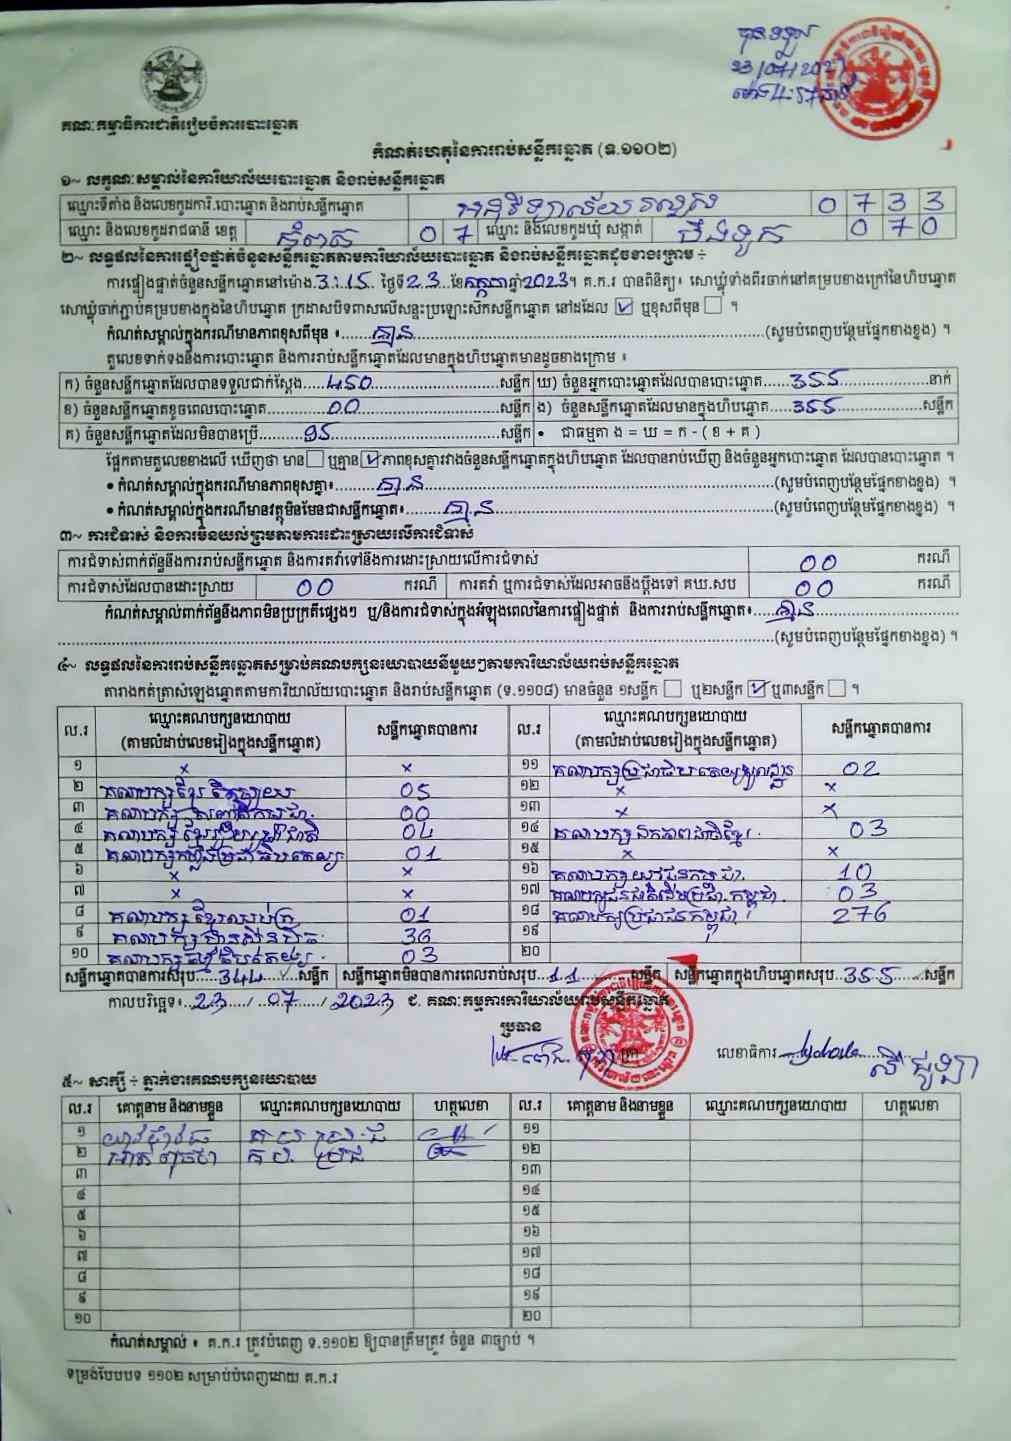 បានទទួល
23/07/2023
ម៉ោង 4:57 នាទី
គណៈកម្មាធិការជាតិរៀបចំការបោះឆ្នោត
កំណត់ហេតុនៃការរាប់សន្លឹកឆ្នោត (ទ.១១០២)
១~ លក្ខណៈសម្គាល់នៃការិយាល័យបោះឆ្នោត និងរាប់សន្លឹកឆ្នោត
ឈ្មោះទីតាំង និងលេខកូដការិ.បោះឆ្នោត និងរាប់សន្លឹកឆ្នោត អនុវិទ្យាល័យ 0 7 3 3
ឈ្មោះ និងលេខកូដរាជធានី ខេត្ត កំពត 0 7 ឈ្មោះ និងលេខកូដឃុំ សង្កាត់ បឹងទូក 0 7 0
២~ លទ្ធផលនៃការផ្ទៀងផ្ទាត់ចំនួនសន្លឹកឆ្នោតតាមការិយាល័យបោះឆ្នោត និងរាប់សន្លឹកឆ្នោតដូចខាងក្រោម ÷
ការផ្ទៀងផ្ទាត់ចំនួនសន្លឹកឆ្នោតនៅម៉ោង 3:15 ថ្ងៃទី 23 ខែ កក្កដា ឆ្នាំ 2023។ គ.ក.រ បានពិនិត្យ៖ សោឃ្លុំទាំងពីរចាក់នៅគម្របខាងក្រៅនៃហិបឆ្នោត
សោឃ្លុំចាក់ភ្ជាប់គម្របខាងក្នុងនៃហិបឆ្នោត ក្រដាសបិទពាសលើសន្ទះប្រឡោះស៊កសន្លឹកឆ្នោត នៅដដែល ☑ ឬខុសពីមុន ☐ ។
កំណត់សម្គាល់ក្នុងករណីមានភាពខុសពីមុន ៖ គ្មាន (សូមបំពេញបន្ថែមផ្នែកខាងខ្នង) ។
តួលេខទាក់ទងនឹងការបោះឆ្នោត និងការរាប់សន្លឹកឆ្នោតដែលមានក្នុងហិបឆ្នោតមានដូចខាងក្រោម ៖
ក) ចំនួនសន្លឹកឆ្នោតដែលបានទទួលជាក់ស្តែង 450 សន្លឹក ឃ) ចំនួនអ្នកបោះឆ្នោតដែលបានបោះឆ្នោត 355 នាក់
ខ) ចំនួនសន្លឹកឆ្នោតខូចពេលបោះឆ្នោត 00 សន្លឹក ង) ចំនួនសន្លឹកឆ្នោតដែលមានក្នុងហិបឆ្នោត 355 សន្លឹក
គ) ចំនួនសន្លឹកឆ្នោតដែលមិនបានប្រើ 95 សន្លឹក • ជាធម្មតា ង = ឃ = ក - ( ខ + គ )
ផ្អែកតាមតួលេខខាងលើ ឃើញថា មាន ☐ ឬគ្មាន ☑ ភាពខុសគ្នារវាងចំនួនសន្លឹកឆ្នោតក្នុងហិបឆ្នោត ដែលបានរាប់ឃើញ និងចំនួនអ្នកបោះឆ្នោត ដែលបានបោះឆ្នោត ។
• កំណត់សម្គាល់ក្នុងករណីមានភាពខុសគ្នា៖ គ្មាន (សូមបំពេញបន្ថែមផ្នែកខាងខ្នង) ។
• កំណត់សម្គាល់ក្នុងករណីមានវត្ថុមិនមែនជាសន្លឹកឆ្នោត៖ គ្មាន (សូមបំពេញបន្ថែមផ្នែកខាងខ្នង) ។
៣~ ការជំទាស់ និងការមិនយល់ព្រមតាមការដោះស្រាយលើការជំទាស់
ការជំទាស់ពាក់ព័ន្ធនឹងការរាប់សន្លឹកឆ្នោត និងការតវ៉ាទៅនឹងការដោះស្រាយលើការជំទាស់ 00 ករណី
ការជំទាស់ដែលបានដោះស្រាយ 00 ករណី ការតវ៉ា ឬការជំទាស់ដែលអាចនឹងប្តឹងទៅ គឃ.សប 00 ករណី
កំណត់សម្គាល់ពាក់ព័ន្ធនឹងភាពមិនប្រក្រតីផ្សេងៗ ឬ/និងការជំទាស់ក្នុងអំឡុងពេលនៃការផ្ទៀងផ្ទាត់ និងការរាប់សន្លឹកឆ្នោត៖ គ្មាន
(សូមបំពេញបន្ថែមផ្នែកខាងខ្នង) ។
៤~ លទ្ធផលនៃការរាប់សន្លឹកឆ្នោតសម្រាប់គណបក្សនយោបាយនីមួយៗតាមការិយាល័យរាប់សន្លឹកឆ្នោត
តារាងកត់ត្រាសំឡេងឆ្នោតតាមការិយាល័យបោះឆ្នោត និងរាប់សន្លឹកឆ្នោត (ទ.១១០៨) មានចំនួន ១សន្លឹក ☐ ឬ២សន្លឹក ☑ ឬ៣សន្លឹក ☐ ។
ល.រ ឈ្មោះគណបក្សនយោបាយ (តាមលំដាប់លេខរៀងក្នុងសន្លឹកឆ្នោត) សន្លឹកឆ្នោតបានការ ល.រ ឈ្មោះគណបក្សនយោបាយ (តាមលំដាប់លេខរៀងក្នុងសន្លឹកឆ្នោត) សន្លឹកឆ្នោតបានការ
១ x x ១១ គណបក្សប្រជាធិបតេយ្យមូលដ្ឋាន 02
២ គណបក្សខ្មែរ 05 ១២ x x
៣ គណបក្ស 00 ១៣ x x
៤ គណបក្សខ្មែររួបរួមជាតិ 04 ១៤ គណបក្សឯកភាពជាតិខ្មែរ 03
៥ គណបក្សកម្លាំងប្រជាធិបតេយ្យ 01 ១៥ x x
៦ x x ១៦ គណបក្សយុវជនកម្ពុជា 10
៧ x x ១៧ គណបក្សជនជាតិដើមប្រជាកម្ពុជា 03
៨ គណបក្សខ្មែរឈប់ក្រ 01 ១៨ គណបក្សប្រជាជនកម្ពុជា 276
៩ គណបក្សហ៊្វុនស៊ិនប៉ិច 36 ១៩
១០ គណបក្សធម្មាធិបតេយ្យ 03 ២០
សន្លឹកឆ្នោតបានការសរុប 344 សន្លឹក សន្លឹកឆ្នោតមិនបានការពេលរាប់សរុប 11 សន្លឹក សន្លឹកឆ្នោតក្នុងហិបឆ្នោតសរុប 355 សន្លឹក
កាលបរិច្ឆេទ៖ 23 / 07 / 2023 ជ. គណៈកម្មការការិយាល័យរាប់សន្លឹកឆ្នោត
ប្រធាន
លេខាធិការ
៥~ សាក្សី ÷ ភ្នាក់ងារគណបក្សនយោបាយ
ល.រ គោត្តនាម និងនាមខ្លួន ឈ្មោះគណបក្សនយោបាយ ហត្ថលេខា ល.រ គោត្តនាម និងនាមខ្លួន ឈ្មោះគណបក្សនយោបាយ ហត្ថលេខា
១ ១១
២ ១២
៣ ១៣
៤ ១៤
៥ ១៥
៦ ១៦
៧ ១៧
៨ ១៨
៩ ១៩
១០ ២០
កំណត់សម្គាល់ ៖ គ.ក.រ ត្រូវបំពេញ ទ.១១០២ ឱ្យបានត្រឹមត្រូវ ចំនួន ៣ច្បាប់ ។
ទម្រង់បែបបទ ១១០២ សម្រាប់បំពេញដោយ គ.ក.រ